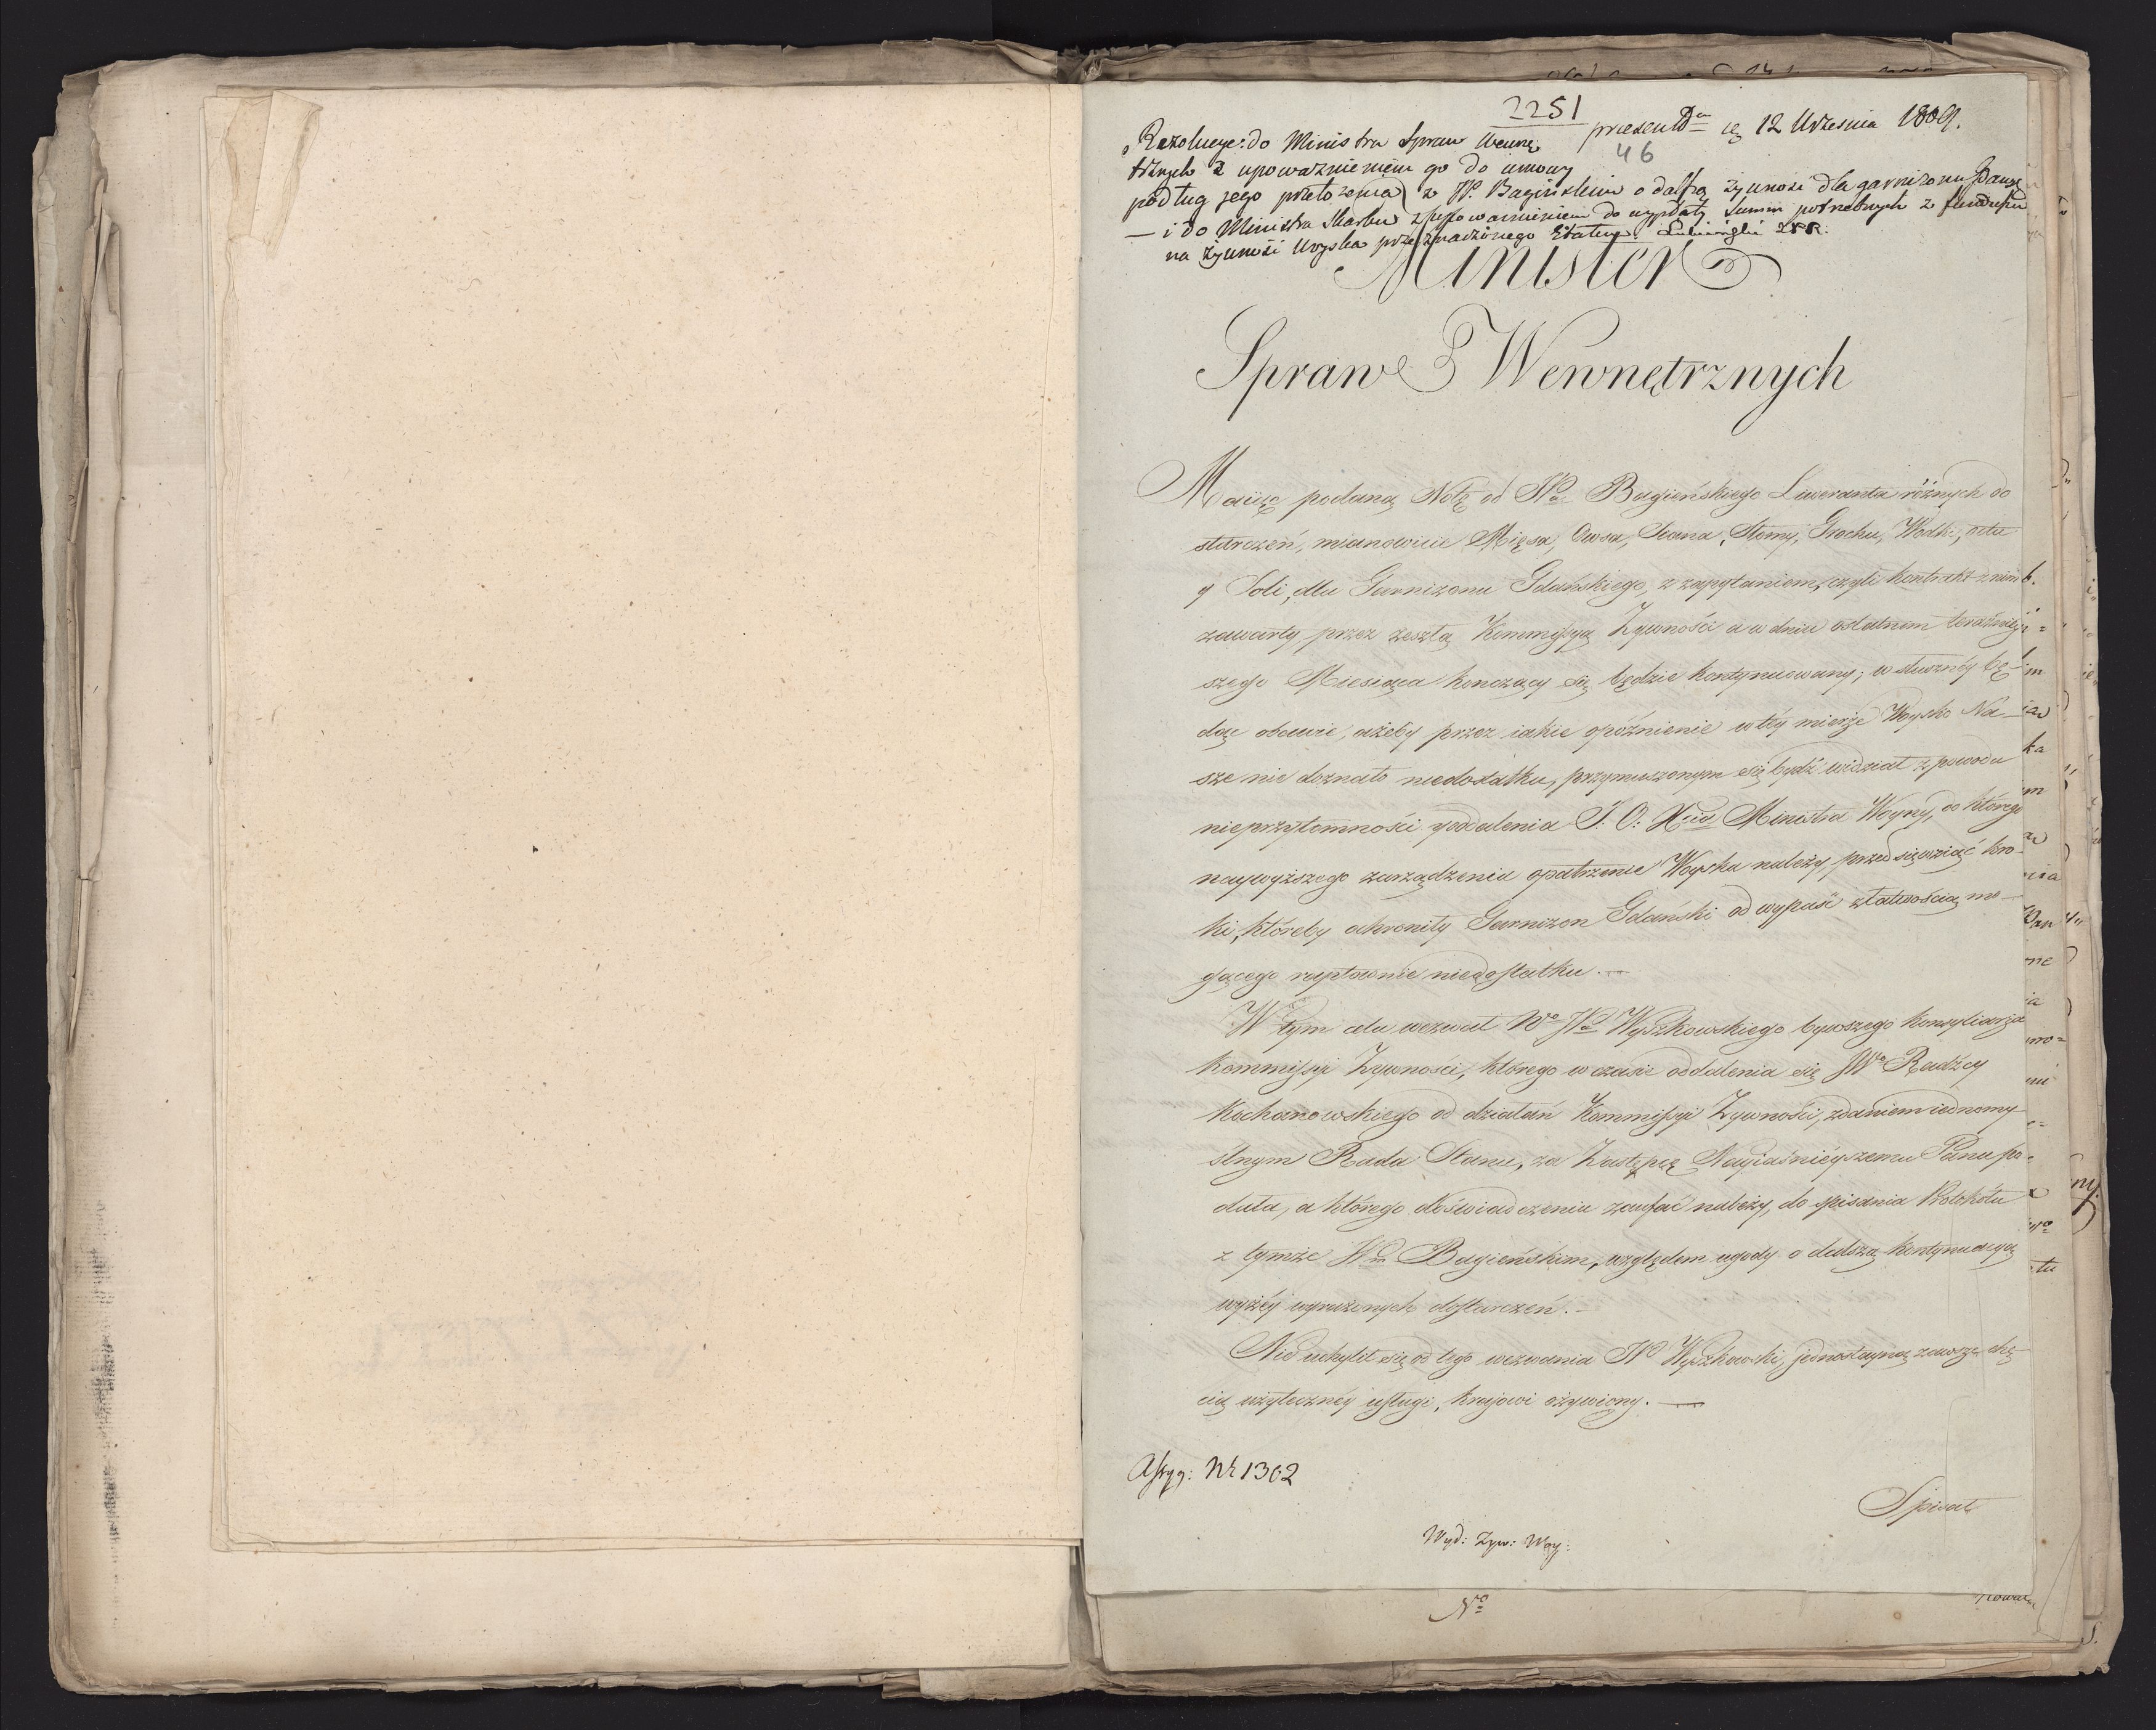 2251
praesent Dn
ię 12 Września 1809.
46
Rezolucye: do Ministra Spraw Wewnę
trznych z upoważnieniem go do umowy
podług jego przełożenia z JP. Bagińskim o dalszą żywność dla garnizonu Gdańs
— i do Ministra Skarbu z upoważnieniem do wypłaty summ potrzebnych z funduszu
na żywność Woyska przeznaczonego Etatem.
Minister
Spraw Wewnętrznych
Maiąc podaną Notę od JPa Bagieńskiego Liweranta różnych do
starczeń, mianowicie Mięsa, Owsa, Siana, Słomy, Grochu, Wódki, octu
y Soli, dla Garnizonu Gdańskiego, z zapytaniem, czyli kontrakt z nim
zawarty przez zeszłą Kommissyą Żywności a w dniu ostatnim teraźniey
szego Miesiąca kończący się będzie kontynuowany; w słuszney bę-
dąc obawie, ażeby przez iakie opóźnienie w tey mierze Woysko Na-
sze nie doznało niedostatku, przymuszonym się bydź widział z powodu
nieprzytomności y oddalenia J: O: Xcia Ministra Woyny, do którego
naywyższego zarządzenia opatrzenie Woyska należy, przedsięwziąć kro-
ki, któreby ochroniły Garnizon Gdański od wypaść z łatwością mo-
gącego raptownie niedostatku. —
W tym celu wezwał Wo JPa Wyszkowskiego bywszego Konsyliarza
Kommissyi Żywności, którego w czasie oddalenia się JWo Radźcy
Kochanowskiego od działań Kommissyi Żywności, zdaniem iednomy
ślnym Rada Stanu, za Zastępcę Nayiaśnieyszemu Panu po-
dała, a którego doświadczeniu zaufać należy, do spisania Protokółu
z tymże JPm Bagieńskim, względem ugody o dalszą kontynuacyą
wyżey wyrażonych dostarczeń. —
Nie uchylił się od tego wezwania JP Wyszkowski, jednostayną zawsze chę-
cią użyteczney usługi, krajowi ożywiony. —
Assyg: Nr 1302
Spisał
Wyd: Żyw: Woy:
No